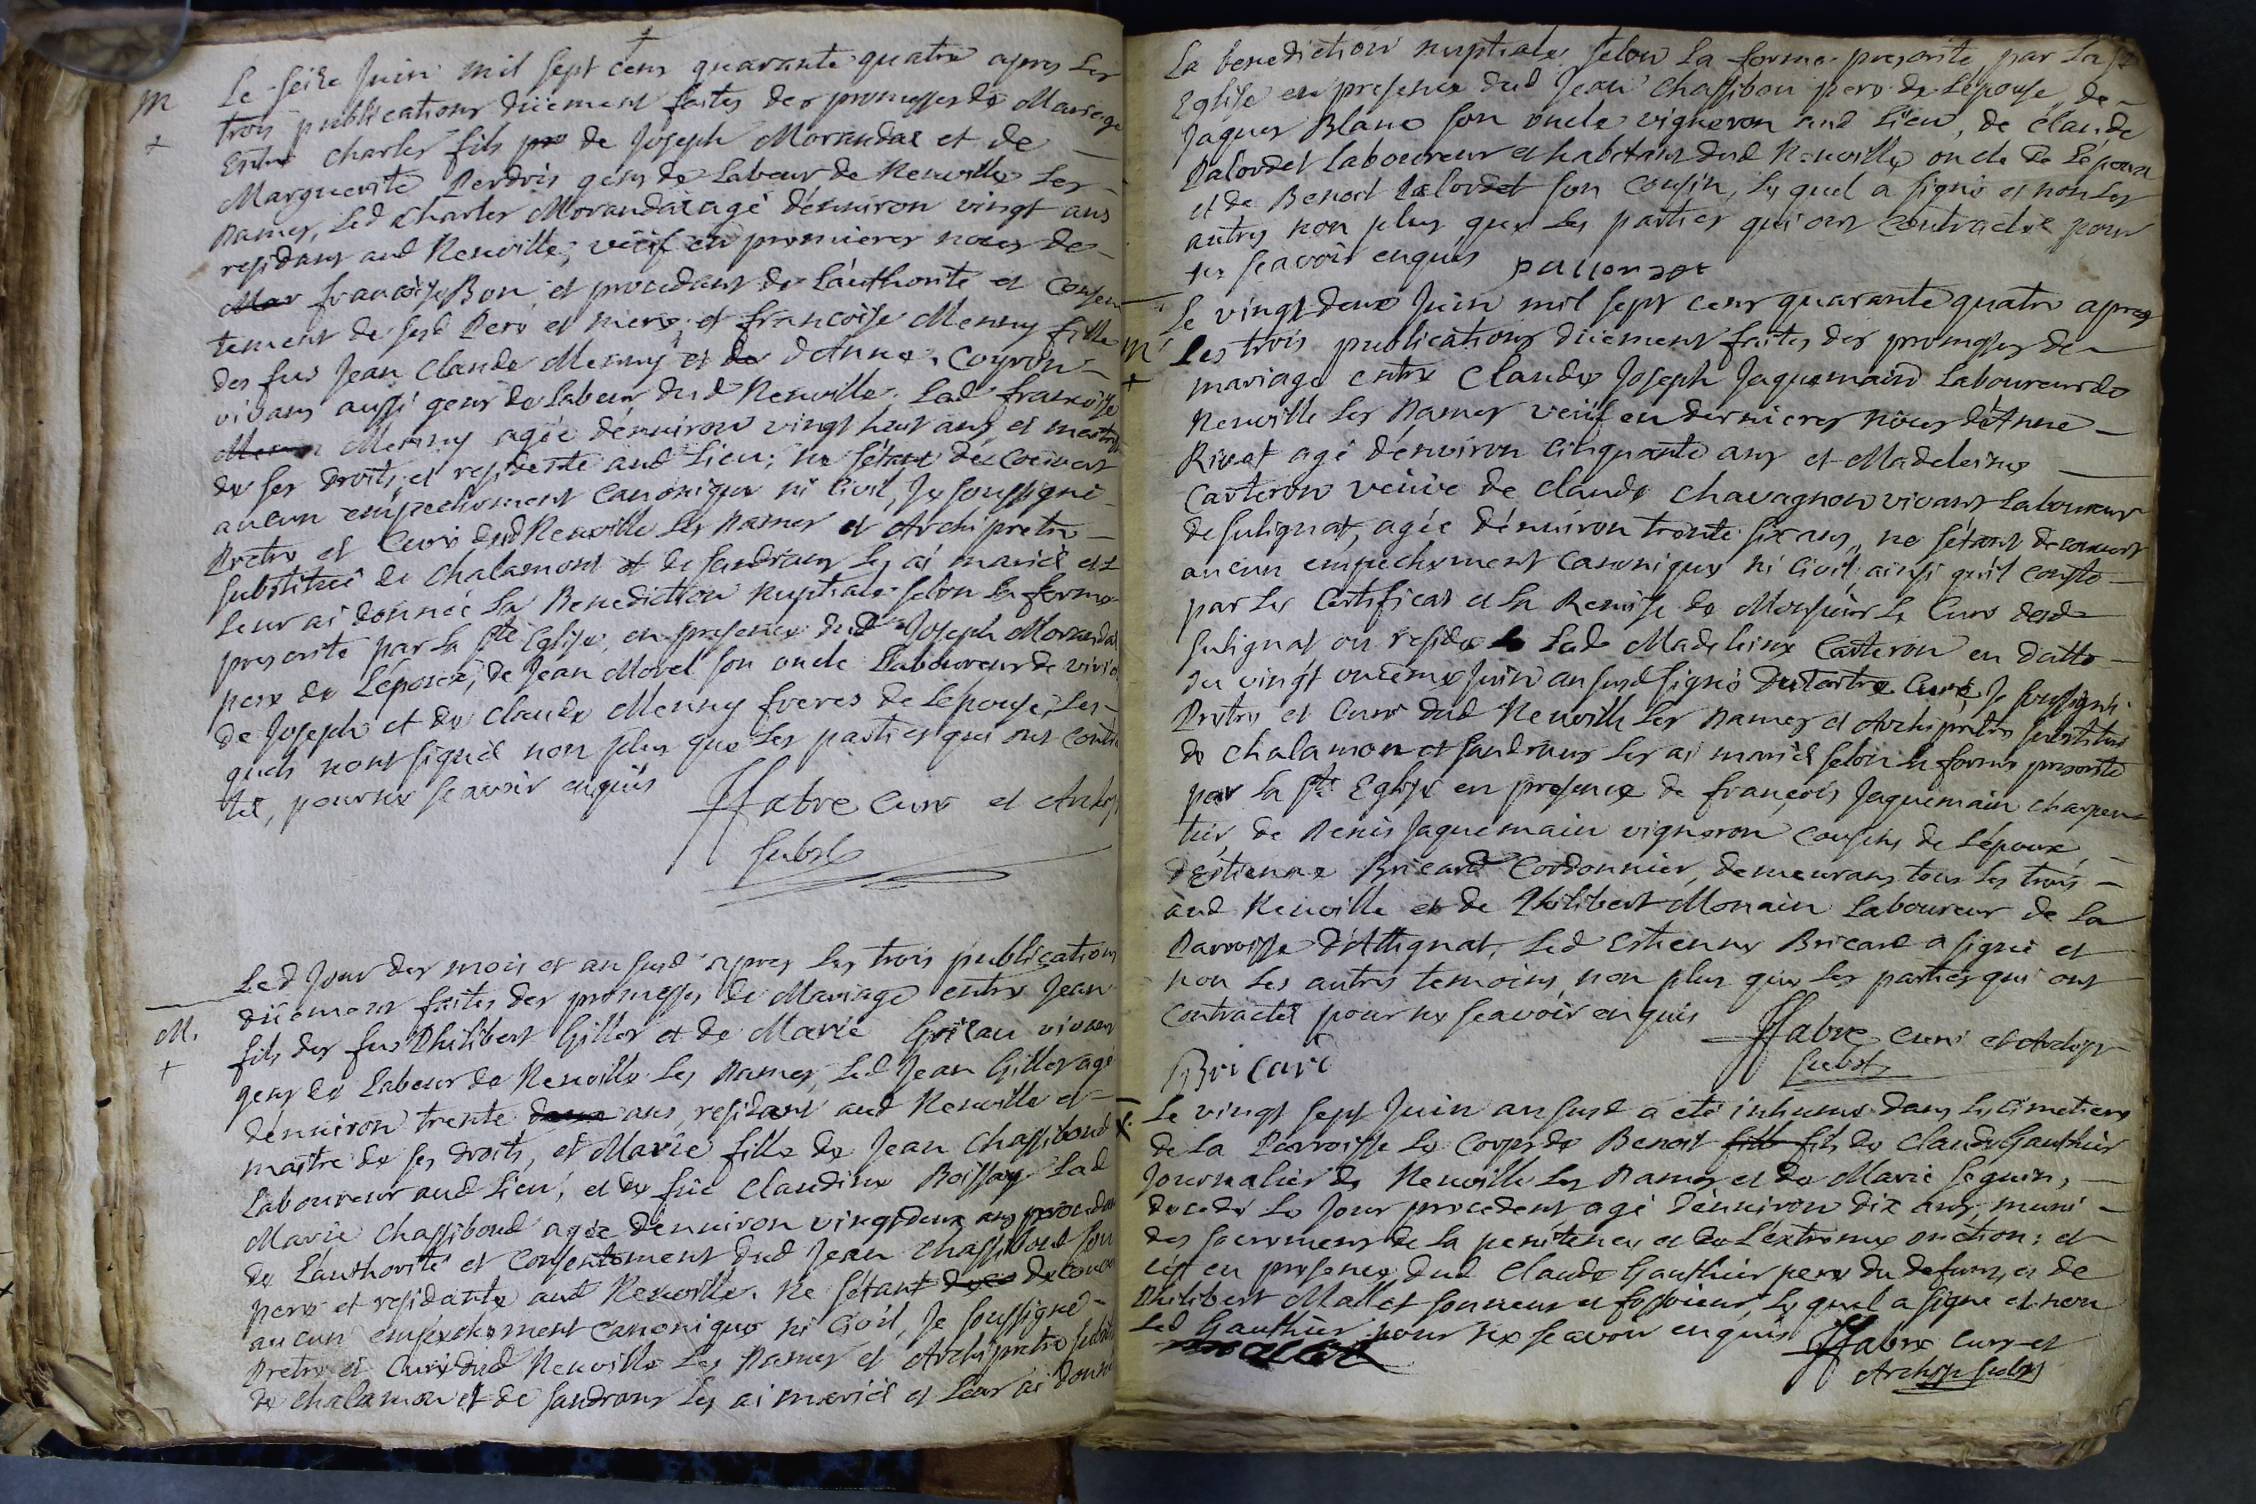 M
+
Le seize Juin mil sept cens quarante quatre apres les
trois publications düement faites des promesses de Mariage
Entre charles fils de Joseph Morandat et de
Marguerite Perdrix gens de Labeur de Neuville Les
Dames, Led Charles Morandat agé d'énuiron vingt ans
residans aud Neuville, veüf en premieres noces de
françoise Bon, et procedant de L'authorité et consen
tement de sesd Pere et mere, et françoise Menny fille
des fus Jean Claude Menny et de d'Anne Coyron
vivans aussi gens de Labeur dud Neuville. Lad françoise
Menny agée d'énuiron vingt huit ans et maitresse
de ses droits et residente aud Lieu; ne s'étant découvert
aucun empechement canonique ni civil, Je soussigné
Pretre et Curé dud Neuville Les Dames et Archipretre
substitué de chalamont et de sandrans Les ai mariés et
Leur ai donnée La Benediction nuptiale selon La forme
prescrite par La Ste Eglise, en presence dud Joseph Morandat
pere de L'époux, de Jean Morel son oncle Laboureur de
de Joseph et de Claude Menny freres de Lepouse, Les
quels n'ont signés non plus que Les parties qui ont contra
ctés, pour ne sçavoir enquis
ffabre Curé et Archip
subst
M.
+
Led Jour des mois et an susd apres Les trois publications
düement faites des promesses de Mariage entre Jean
fils des fus Philibert Gillet et de Marie vivans
gens de Labeur de Neuville Les Dames, Led Jean Gillet agé
d'énuiron trente ans, residant aud Neuville et
maitre de ses droits, et Marie fille de Jean Chassiboud
Laboureur aud Lieu, et de füe Claudine Boissay Lad
Marie Chassiboud agée d'énuiron vingt deux ans procedant
de L'authorité et Consentement dud Jean Chassiboud son
pere et residante aud Neuville. ne s'étant decouvert
aucun empechement canonique ni Civil, Je soussigné
Pretre et Curé dud Neuville Les Dames et Archipretre substitué
de chalamon et de sandrans Les ai mariés et Leur ai donné
La benediction nuptiale selon La forme prescrite par La Ste
Eglise en presence dud Jean Chassibou pere de L'epouse, de
Jaques Blanc son oncle vigneron aud Lieu, de Claude
Palordet Laboureur et habitant dud Neuville oncle de L'époux
et de Benoit Palordet son Cousin, Le quel a signé et non Les
autres non plus que Les parties qui ont contractée pour
ne sçavoir enquis
M
+
Le vingt deux Juin mil sept cens quarante quatre apres
Les trois publications düement faites des promesses de
mariage entre Claude Joseph Jaquemain Laboureur de
Neuville Les Dames veüf en dernieres nôces d'Anne
Rivat agé d'énuiron cinquante ans et Madeleine
Carteron veüve de Claude Chavagnon vivant Laboureur
de sulignat, agée d'énuiron trente six ans, ne s'étant decouvert
aucun empechement canonique ni Civil, ainsi qu'il conste
par Le Certificat et La Remise de Monsieur Le Curé dud
sulignat ou reside Lad Madeleine Carteron en datte
du vingt onéeme Juin an susd signé dutartre Curé, Je soussigné
Pretre et Curé dud Neuville Les Dames et Archipretre substitué
de chalamon et sandrans Les ai mariés selon La forme prescrite
par La Ste Eglise en presence de françois Jaquemain charpen
tier, de Denis Jaquemain vigneron cousins de L'époux
d'Estienne Bricard Cordonnier, demeurans tous Les trois
aud Neuville et de Philibert Monain Laboureur de La
Parroisse d'Attignat, Led Estienne Bricard a signé et
non Les autres temoins, non plus que Les parties qui ont
contractés pour ne sçavoir enquis
ffabre Curé et Archipr
Bricard
subst
Le vingt sept Juin an susd a eté inhumé dans Le cimetiere
de La Parroisse Le Corps de Benoit fils de Claude Gauthier
Journalier de Neuville Les Dames et de Marie Seguin,
decedé Le Jour precedent agé d'énuiron dix ans, muni
des sacremens de la penitence et de L'extreme onction: et
ce en presence dud Claude Gauthier pere du defunt et de
Philibert Mallet sonneur et fossoieur, Le quel a signé et non
Led Gauthier pour ne sçavoir enquis
ffabre Curé et
Archipr subst